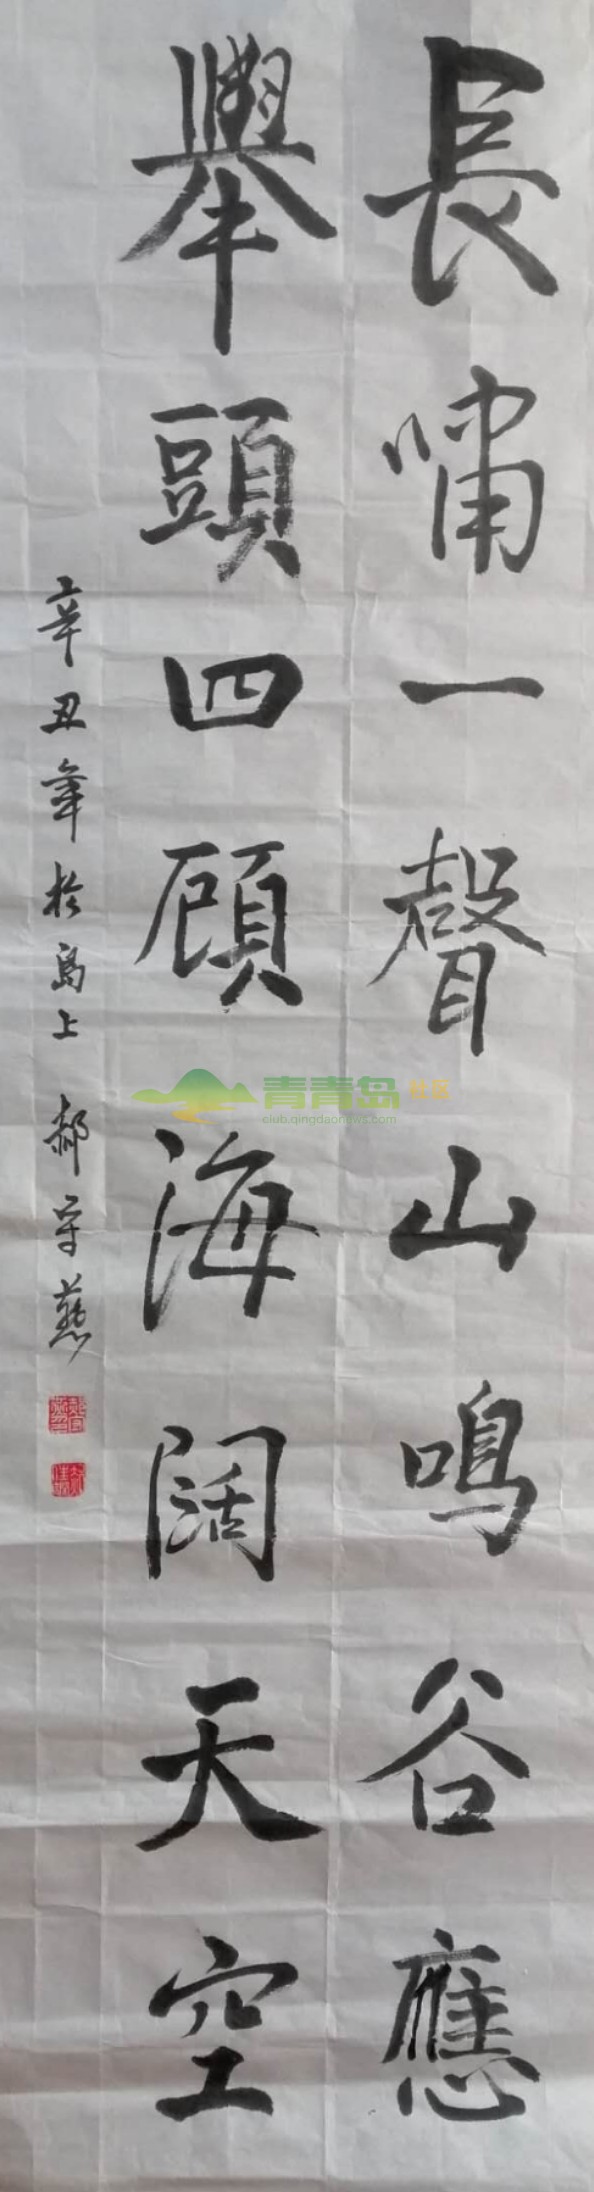 長嘯一聲山鳴谷應
舉頭四顧海闊天空
辛丑年於島上 郝守燕
青青岛社区
club.qingdaonews.com